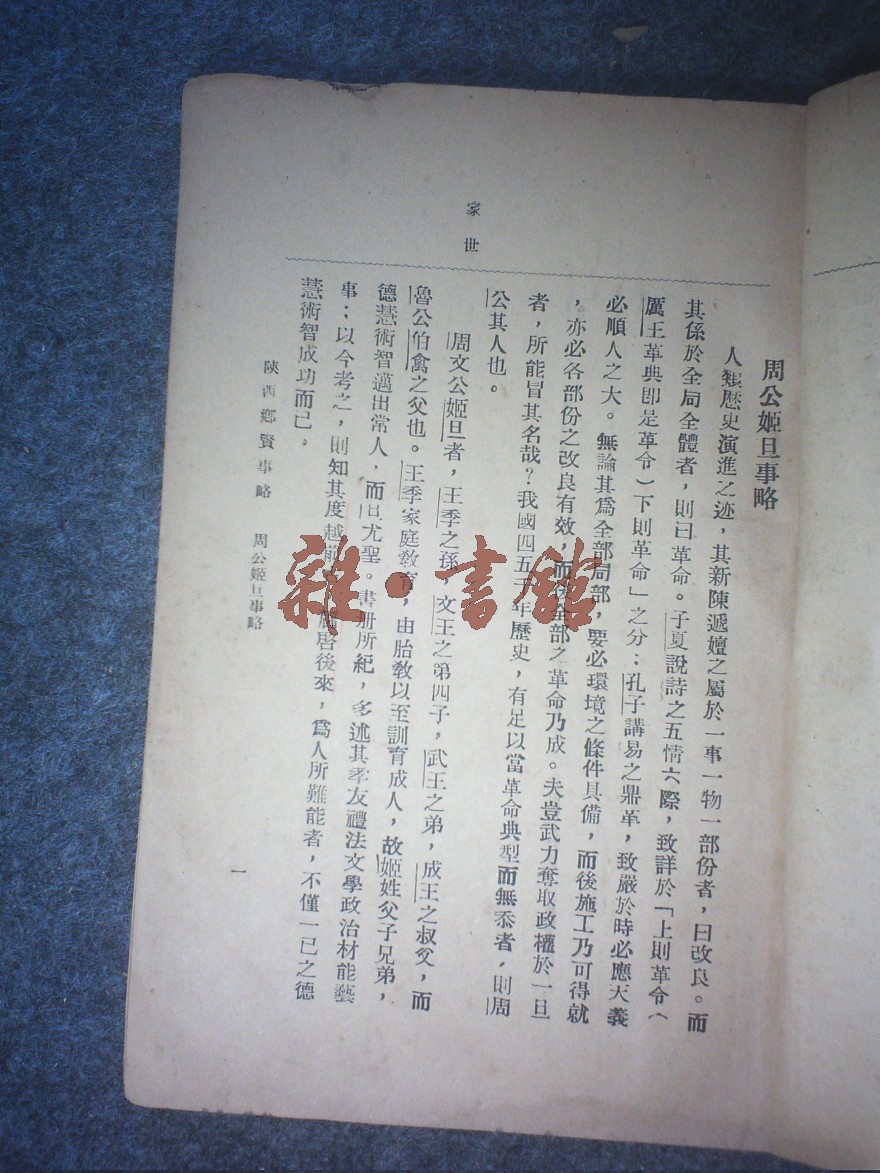 周公姬旦事略
人類歷史演進之迹，其新陳遞嬗之屬於一事一物一部份者，曰改良。而
其係於全局全體者，則曰革命。子夏說詩之五情六際，致詳於「上則革令（
厲王革典卽是革令）下則革命」之分；孔子講易之鼎革，致嚴於時必應天義
必順人之大。無論其爲全部局部，要必環境之條件具備，而後施工乃可得就
，亦必各部份之改良有效，而後全部之革命乃成。夫豈武力奪取政權於一旦
者，所能冒其名哉？我國四五千年歷史，有足以當革命典型而無忝者，則周
公其人也。
家世
周文公姬旦者，王季之孫，文王之第四子，武王之弟，成王之叔父，而
魯公伯禽之父也。王季家庭敎育，由胎敎以至訓育成人，故姬姓父子兄弟，
德慧術智邁出常人，而旦尤聖。書册所紀，多述其孝友禮法文學政治材能藝
事；以今考之，則知其度越前 啓後來，爲人所難能者，不僅一己之德
慧術智成功而已。
陝西鄉賢事略 周公姬旦事略
一
雜·書館